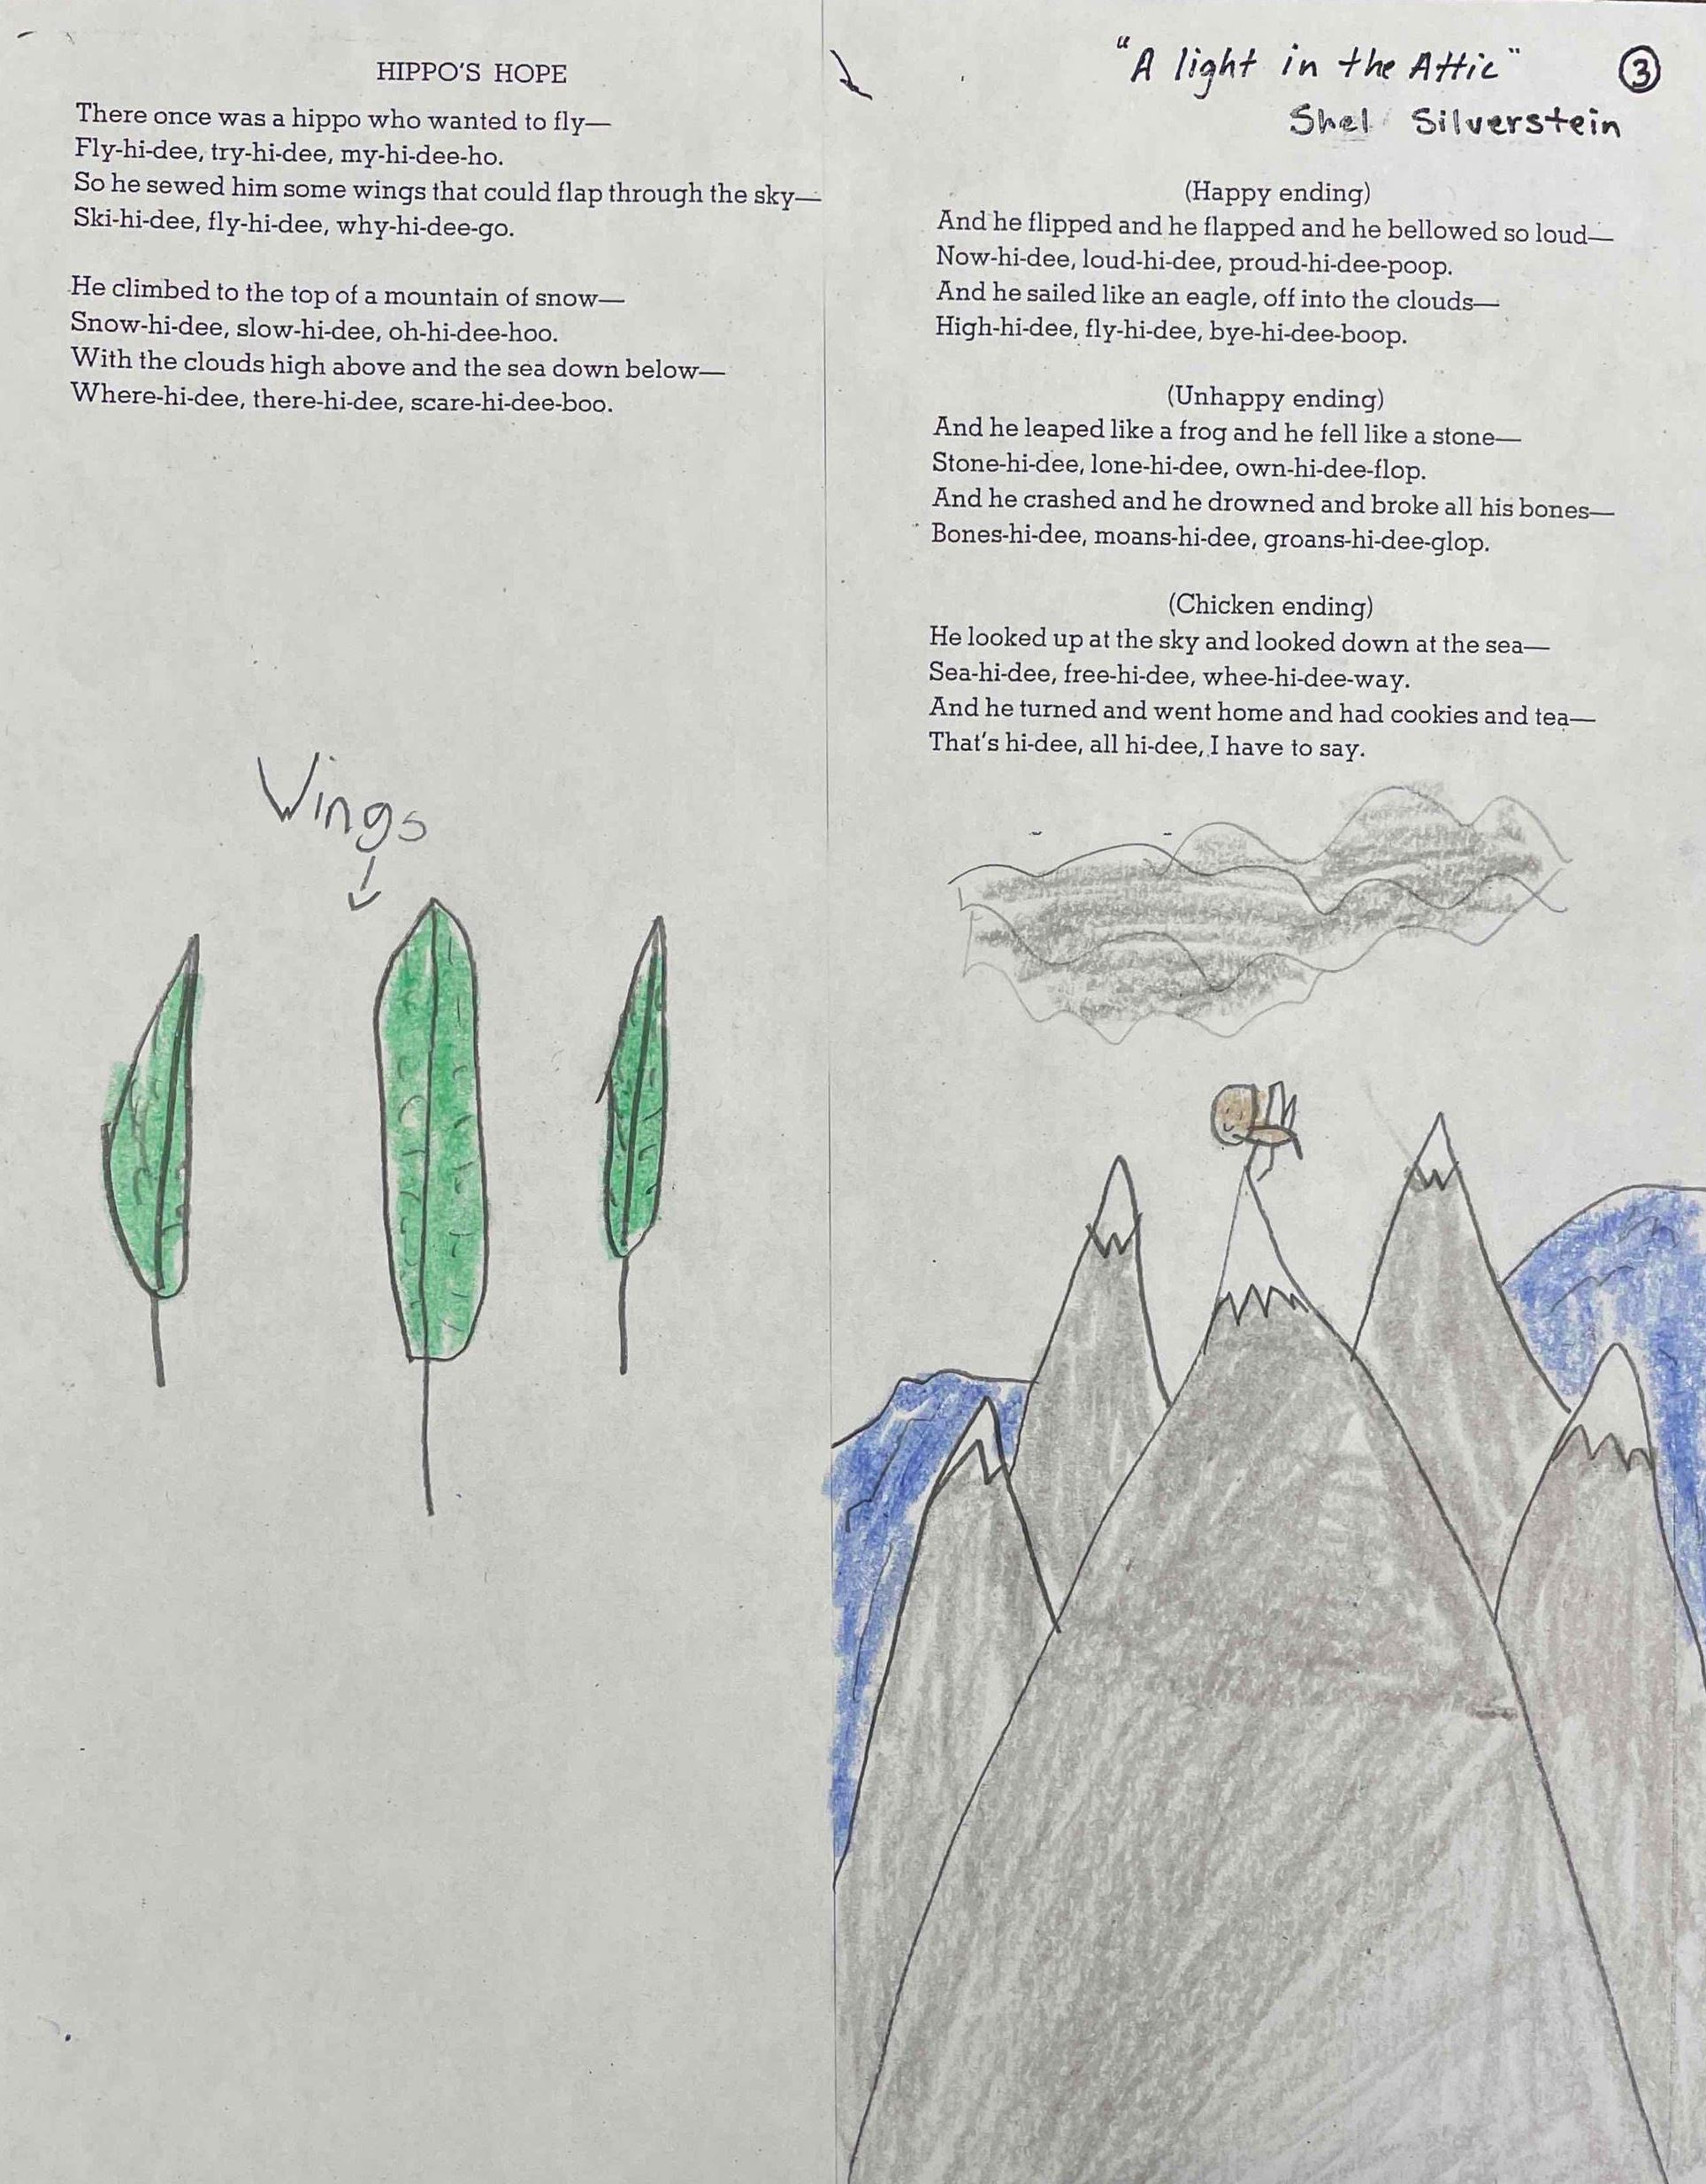 HIPPO'S HOPE
There once was a hippo who wanted to fly—
Fly-hi-dee, try-hi-dee, my-hi-dee-ho.
So he sewed him some wings that could flap through the sky—
Ski-hi-dee, fly-hi-dee, why-hi-dee-go.
He climbed to the top of a mountain of snow—
Snow-hi-dee, slow-hi-dee, oh-hi-dee-hoo.
With the clouds high above and the sea down below—
Where-hi-dee, there-hi-dee, scare-hi-dee-boo.
Wings
"A light in the Attic"
3
Shel Silverstein
(Happy ending)
And he flipped and he flapped and he bellowed so loud—
Now-hi-dee, loud-hi-dee, proud-hi-dee-poop.
And he sailed like an eagle, off into the clouds—
High-hi-dee, fly-hi-dee, bye-hi-dee-boop.
(Unhappy ending)
And he leaped like a frog and he fell like a stone—
Stone-hi-dee, lone-hi-dee, own-hi-dee-flop.
And he crashed and he drowned and broke all his bones—
Bones-hi-dee, moans-hi-dee, groans-hi-dee-glop.
(Chicken ending)
He looked up at the sky and looked down at the sea—
Sea-hi-dee, free-hi-dee, whee-hi-dee-way.
And he turned and went home and had cookies and tea—
That's hi-dee, all hi-dee, I have to say.